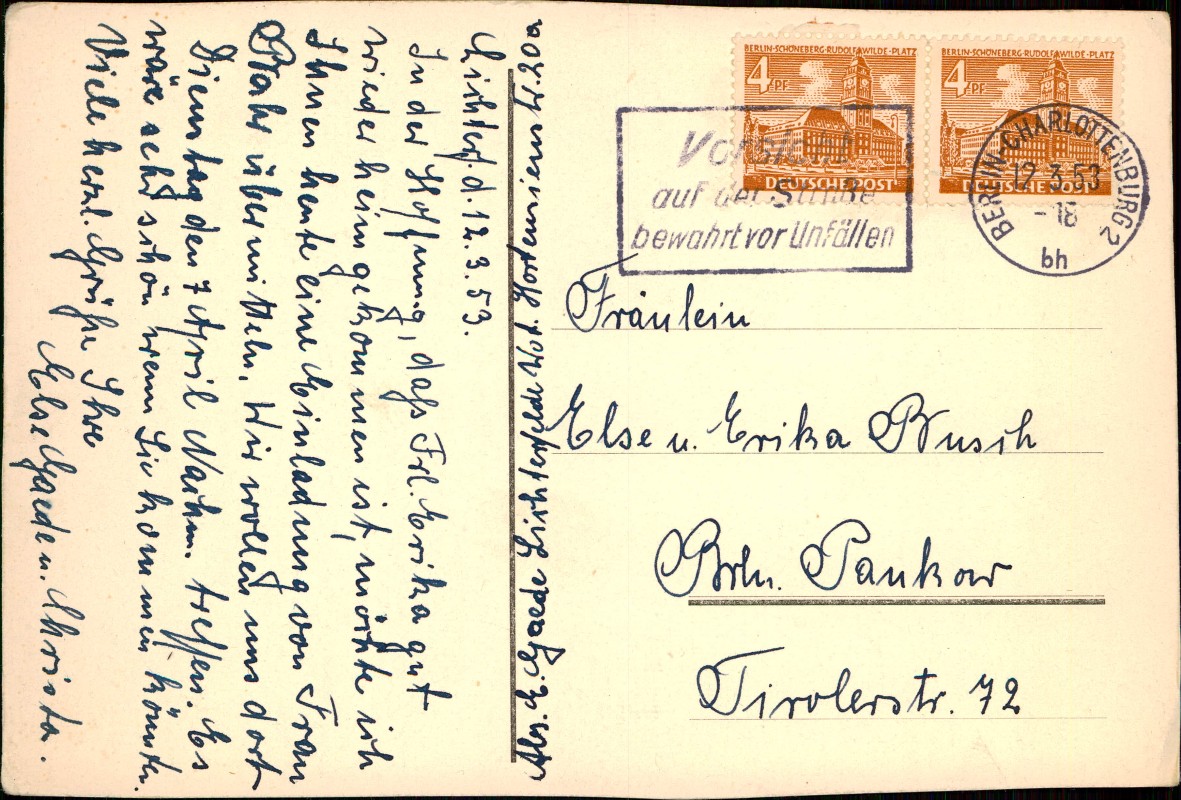 Lichterf. d. 12. 3. 53.
In der Hoffnung, daß Frl. Erika gut
wieder heimgekommen ist, möchte ich
Ihnen heute eine Einladung von Frau
übermitteln. Wir wollen uns dort
Dienstag den 7 April Nachm. treffen. Es
wäre sehr schön wenn Sie kommen könnten.
Viele herzl. Grüße Ihre
Else Gaede u. Christa.
Abs. E. Gaede Lichterfelde West. Hortensienstr. 20a
BERLIN-SCHÖNEBERG·RUDOLF-WILDE-PLATZ
4 PF
DEUTSCHE POST
BERLIN-SCHÖNEBERG·RUDOLF-WILDE-PLATZ
4 PF
DEUTSCHE POST
Vorsicht
auf der Straße
bewahrt vor Unfällen
BERLIN-CHARLOTTENBURG 2
12.3.53
-18
bh
Fräulein
Else u. Erika Busch
Brln. Pankow
Tirolerstr. 72